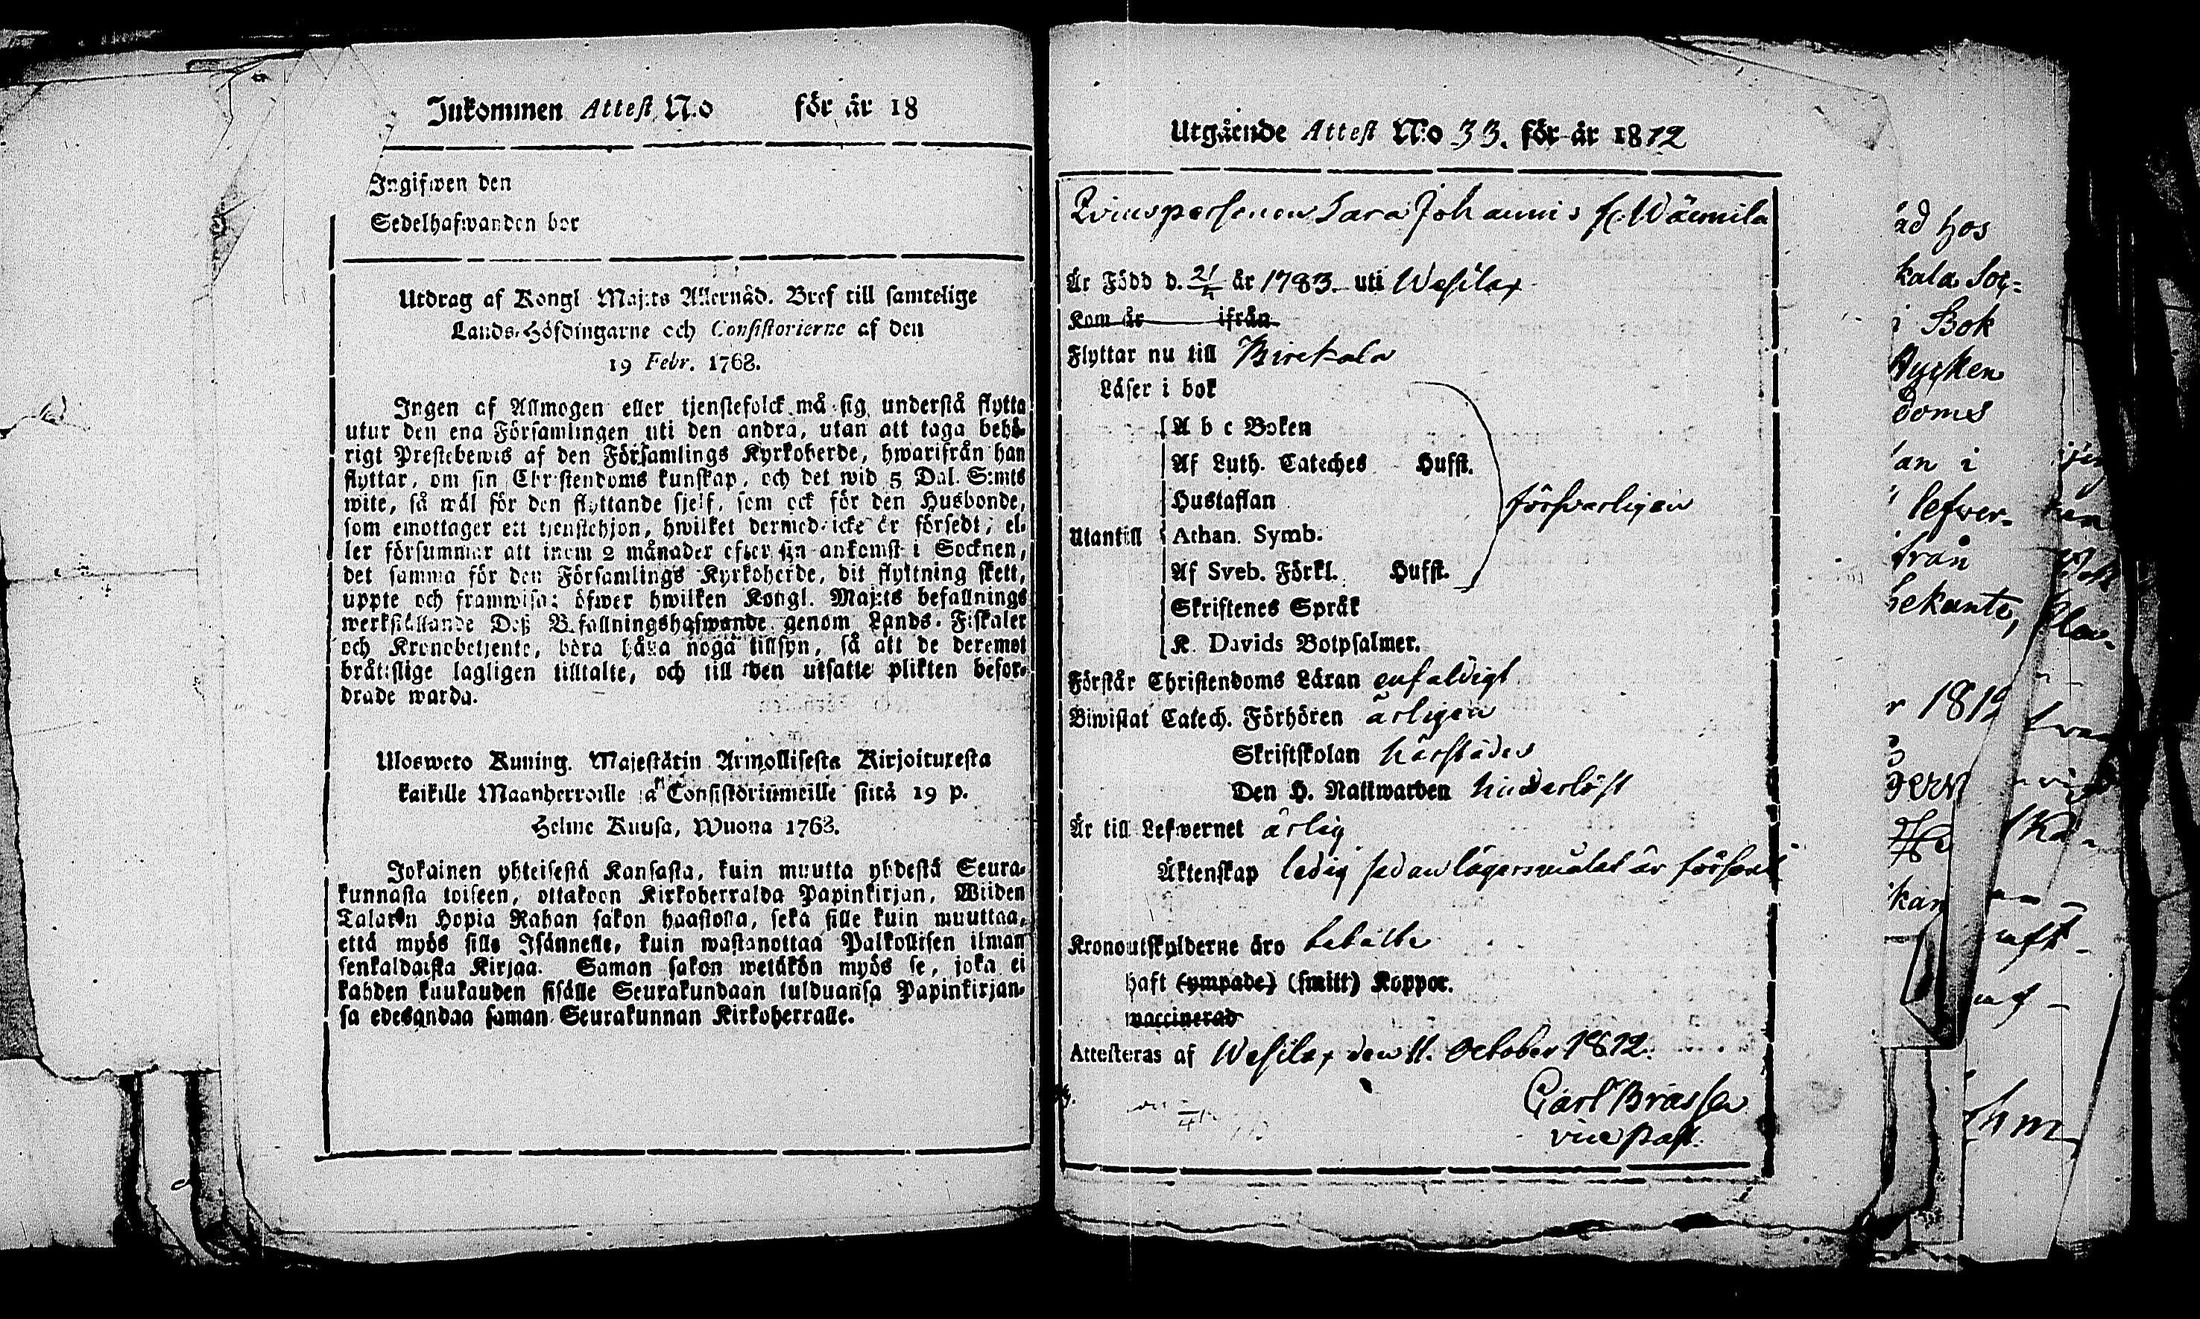 Inkommen Attest N:o för år 18
Ingifwen den
Sedelhafwanden bor
Utdrag af Kongl Maj:ts Allernåd. Bref till samtelige
Lands-Höfdingarne och Consistorierne af den
19 Febr. 1768.
Ingen af Allmogen eller tjenstefolck må sig understå flytta
utur den ena Församlingen uti den andra, utan att taga behö-
rigt Prestebewis af den Församlings Kyrkoherde, hwarifrån han
flyttar, om sin Christendoms kunskap, och det wid 5 Dal. S:mts
wite, så wäl för den flyttande sjelf, som ock för den Husbonde,
som emottager ett tjenstehjon, hwilket dermed icke är försedt, el-
ler försummar att inom 2 månader efter sin ankomst i Socknen,
det samma för den Församlings Kyrkoherde, dit flyttning skett,
uppte och framwisa: öfwer hwilken Kongl. Maj:ts befallnings
werkställande Deß Befallningshafwande genom Lands-Fiskaler
och Kronobetjente, böra hafwa noga tillsyn, så att de deremot
bråtslige lagligen tilltalte, och till den utsatte plikten befor-
drade warda.
Uloswето Kuning. Majestätin Armollisesta Kirjoituxesta
kaikille Maanherroille ja Consistoriumeille siitä 19 p.
Helme Kuusa, Wuona 1768.
Jokainen yhteisestä Kansasta, kuin muutta yhdestä Seura-
kunnasta toiseen, ottakoon Kirkoherralda Papinkirjan, Wiiden
Talarin Hopia Rahan sakon haastolla, sekä sille kuin muuttaa,
että myös sille Isännelle, kuin wastanottaa Palkollisen ilman
senkaldaista Kirjaa. Saman sakon wetäkön myös se, joka ei
kahden kuukauden sisälle Seurakundaan tulduansa Papinkirjan-
sa edesandaa saman Seurakunnan Kirkoherralle.
Utgående Attest N:o 33. för år 1812
Qvinspersonen Sara Johannis fr. Wäemila
Är Född d. 21/4 år 1783 uti Wesilax
Kom år ifrån
Flyttar nu till Birckala
Läser i bok
A b c Boken
Af Luth. Cateches Husst.
Hustaflan försvarligen
Utantill Athan. Symb.
Af Sveb. Förkl. Husst.
Skriftenes Språk
K. Davids Botpsalmer.
Förstår Christendoms Läran enfaldigt
Biwistat Catech. Förhören ärligen
Skriftskolan härstädes
Den H. Nattwarden hinderlöst
Är till Lefwernet ärlig
Äktenskap ledig sedan lägersmålet är försont
Kronoutskylderne äro betalte
haft (ympade) (smitt) Koppor.
vaccinerad
Attesteras af Wesilax den 11. October 1812.
Carl Brasse
vice past.
hos
kala Soc-
i Bok
stycken
doms
an i
lefver-
från
bekante,
r 1812